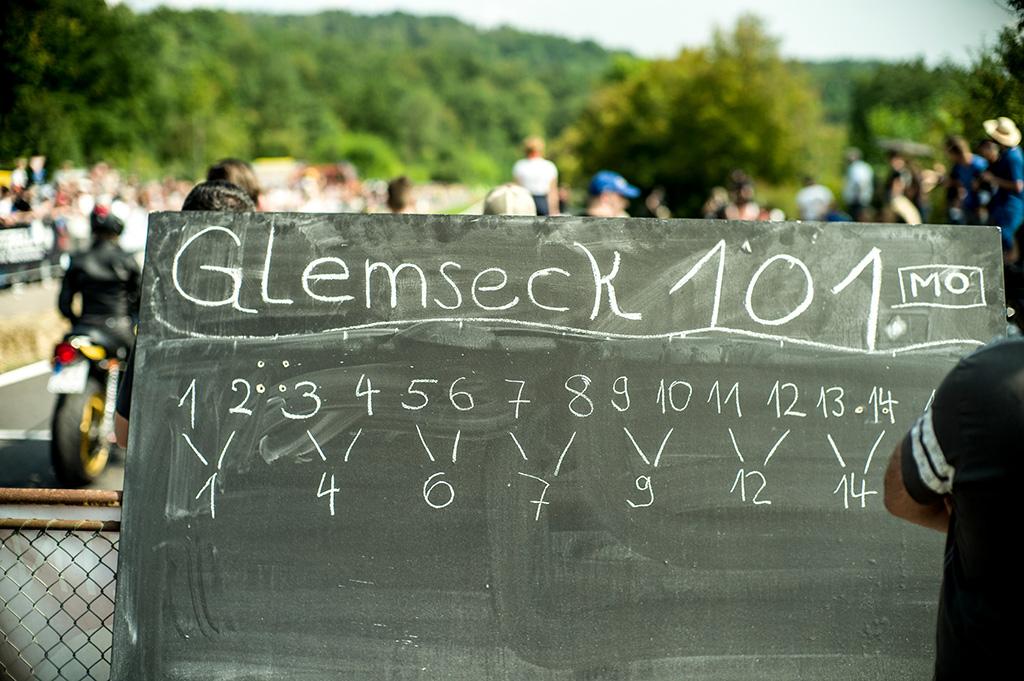 Glemseck 101 MO
1 2 3 4 5 6 7 8 9 10 11 12 13 14
1 4 6 7 9 12 14